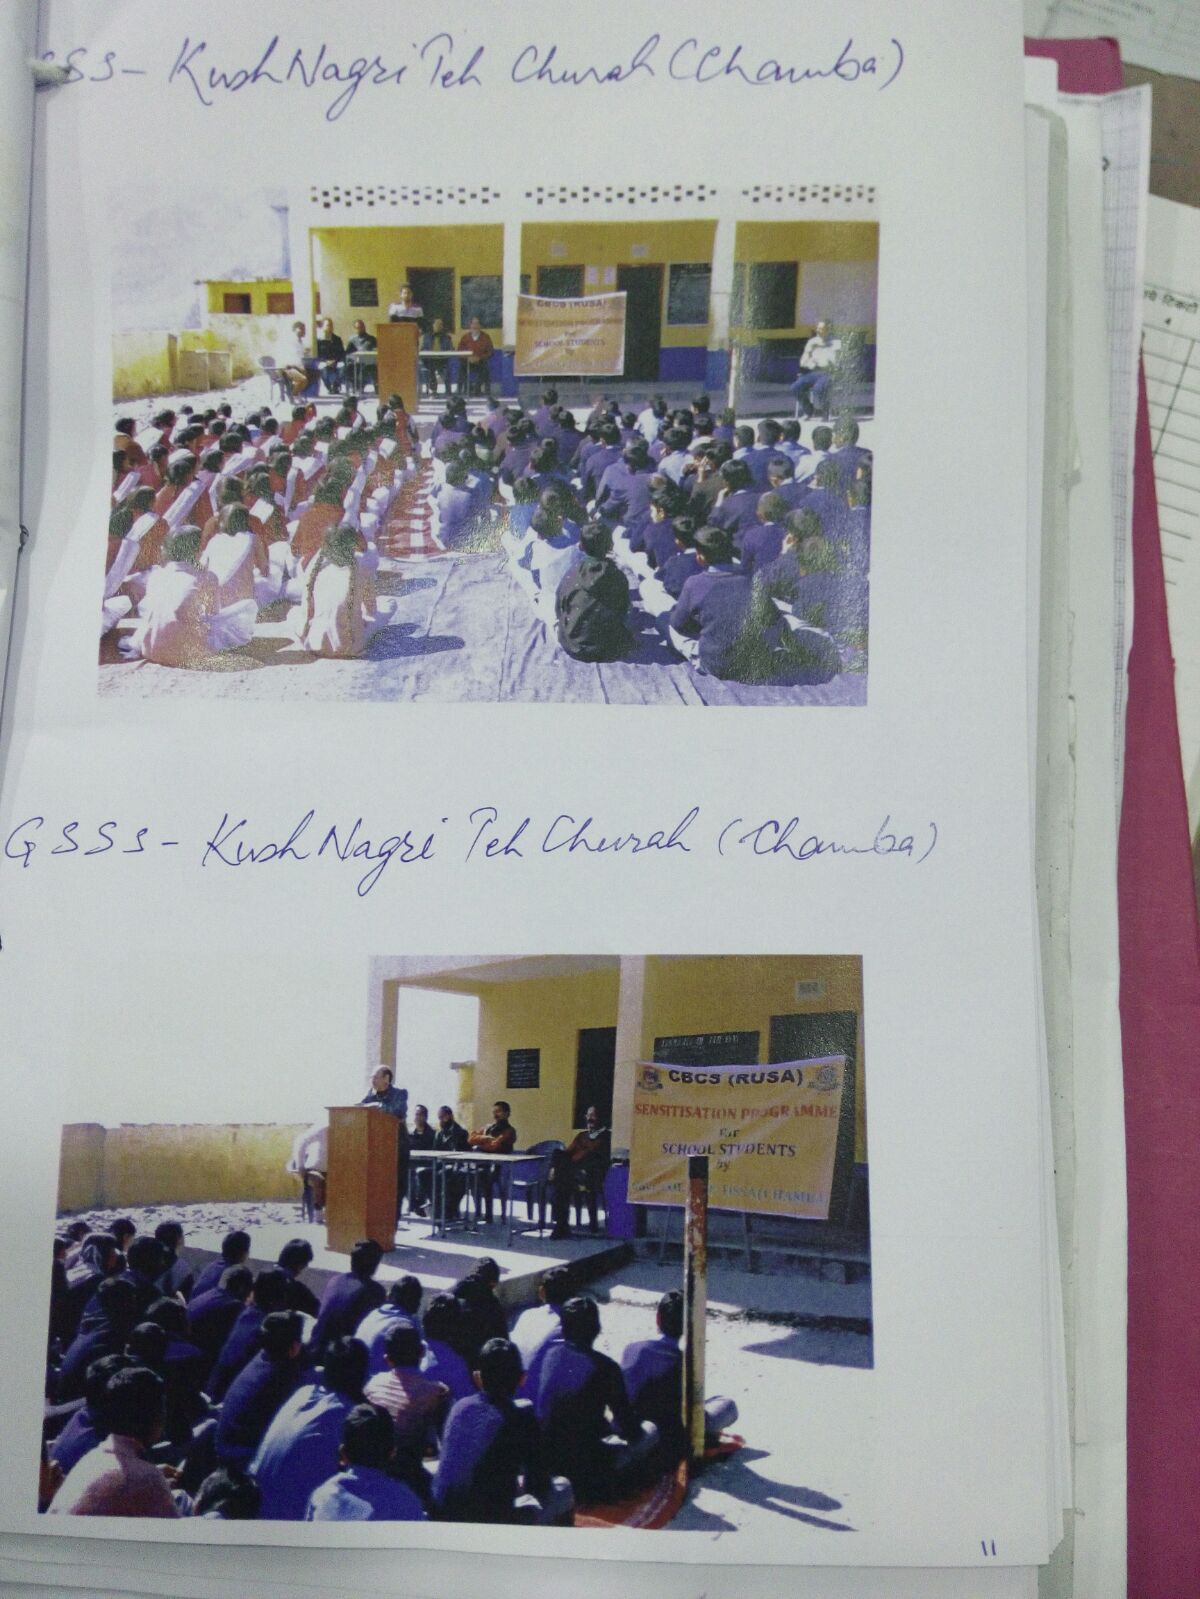 SSS - Kush Nagri Teh Churah (Chamba)
CBCS (RUSA)
SCHOOL STUDENTS
GSSS - Kush Nagri Teh Churah (Chamba)
CBCS (RUSA)
SENSITISATION PROGRAMME
for
SCHOOL STUDENTS
by
TISSA (CHAMBA)
11